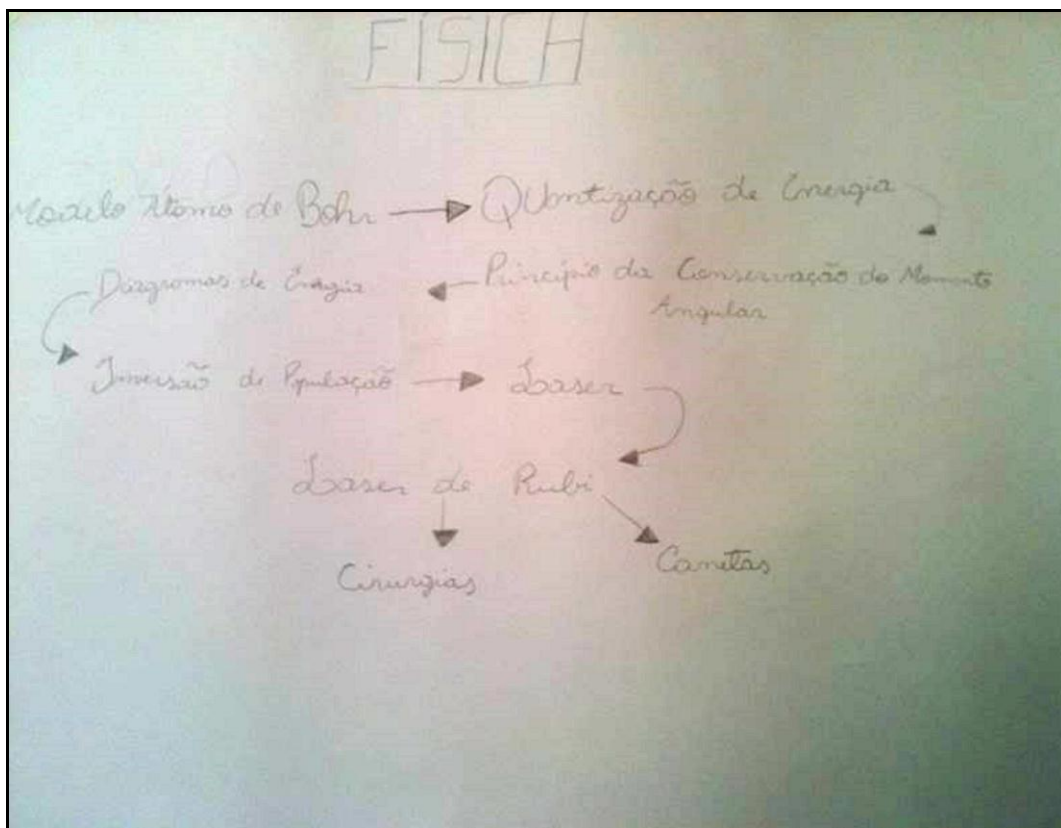 FÍSICA
Modelo Átomo de Bohr → Quantização de Energia
Diagramas de Energia ← Princípio da Conservação do Momento
Angular
Inversão de População → Laser
Laser de Rubi
Cirurgias
Canetas